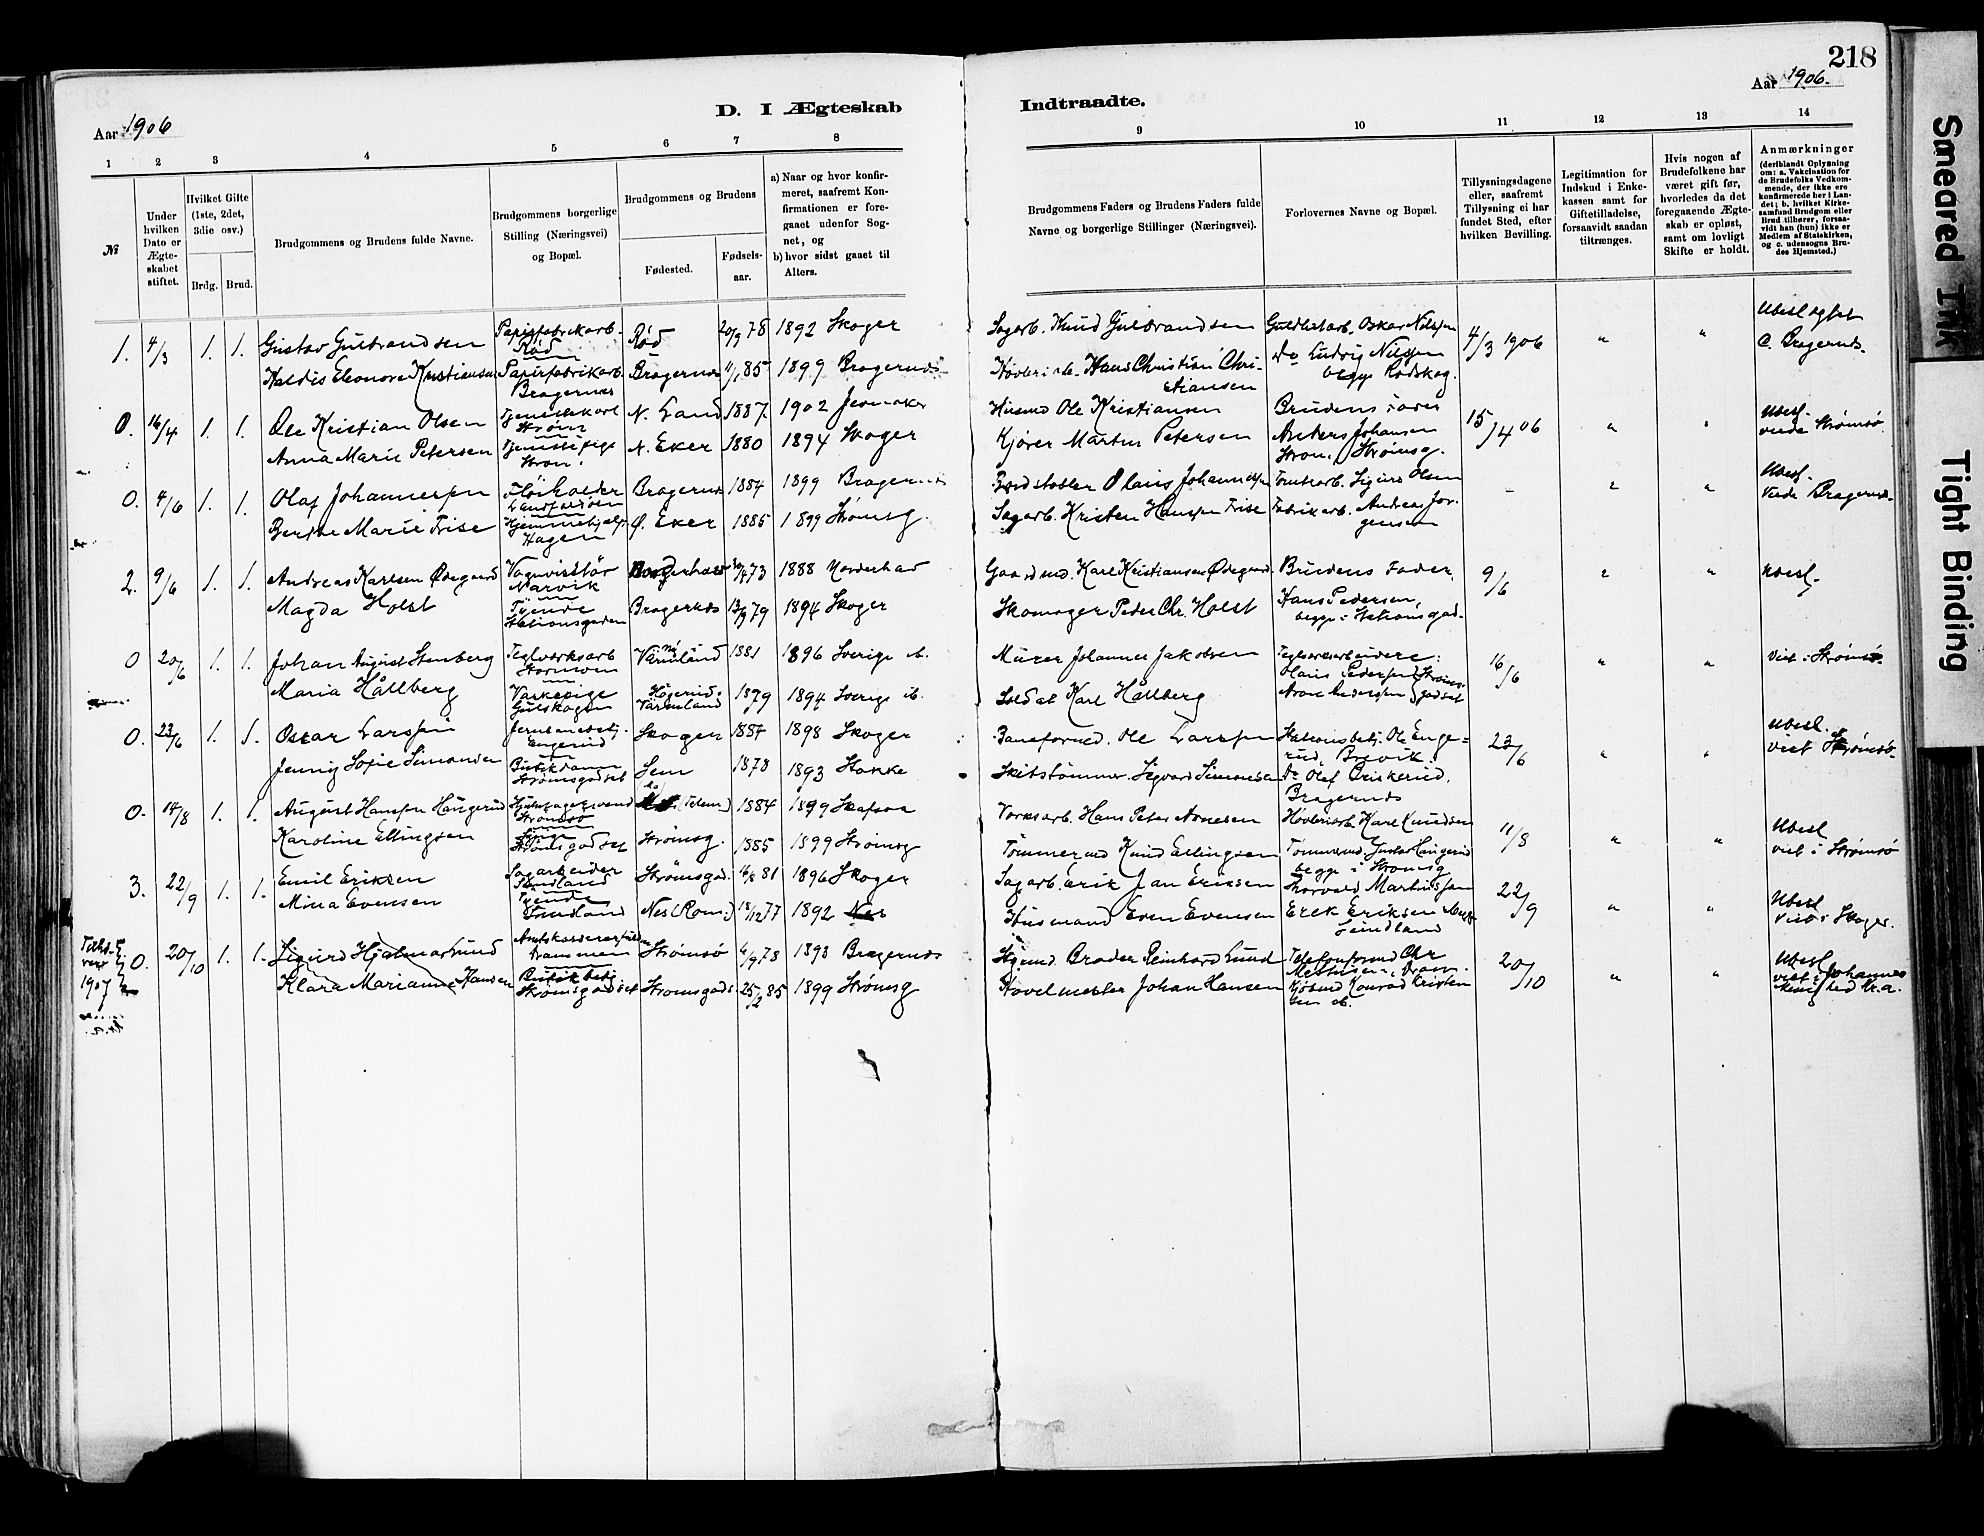 218
Aar 1906.
D. I Ægteskab
Indtraadte.
Aar 1906
1 2 3 4 5 6 7 8
9 10 11 12 13 14
№
Under hvilken Dato er Ægteskabet stiftet.
Hvilket Gifte (1ste, 2det, 3die osv.)
Brdg. Brud.
Brudgommens og Brudens fulde Navne.
Brudgommens borgerlige Stilling (Næringsvei) og Bopæl.
Brudgommens og Brudens
Fødested.
Fødselsaar.
a) Naar og hvor konfirmeret, saafremt Konfirmationen er foregaaet udenfor Sognet, og
b) hvor sidst gaaet til Alters.
Brudgommens Faders og Brudens Faders fulde Navne og borgerlige Stillinger (Næringsvei).
Forlovernes Navne og Bopæl.
Tillysningsdagene eller, saafremt Tillysning ei har fundet Sted, efter hvilken Bevilling.
Legitimation for Indskud i Enkekassen samt for Giftetilladelse, forsaavidt saadan tiltrænges.
Hvis nogen af Brudefolkene har været gift før, hvorledes da det foregaaende Ægteskab er opløst, samt om lovligt Skifte er holdt.
Anmærkninger
(deriblandt Oplysning om: a. Vakcination for de Brudefolks Vedkommende, der ikke ere konfirmerede her i Landet; b. hvilket Kirkesamfund Brudgom eller Brud tilhører, forsaavidt han (hun) ikke er Medlem af Statskirken, og c. udensogns Brudes Hjemsted.)
1. 4/3 1. 1. Gustav Gulbrandsen Papirfabrikarb. Rød Rød 20/9 78 1892 Skoger Sagarb. Knud Gulbrandsen Oskar Nilssen 4/3 1906 Ubeslægtet
Haldis Eleonore Kristiansen Papirfabrikarb. Bragernæs Bragernæs 11/1 85 1899 Bragernæs Hans Christian Christiansen Do Ludvig Nilssen begge Rødskog. c. Bragernæs.
0. 16/4 1. 1. Ole Kristian Olsen Tjenestekarl Strøm N. Land 1887. 1902 Jevnaker Husmd Ole Kristiansen Brudens Fader 15/4 06 Ubesl.
Anna Marie Petersen Tjenestepige Strøm. N. Eker 1880 1894 Skoger Kjører Martin Petersen Anders Johansen Strøm, Strømsg. viede Strømsø.
0. 4/6 1. 1. Olaf Johannessen Landfaldøen Bragernæs 1884 1899 Bragernæs Olaus Johannessen Tomtearb. Sigurd Olsen Ubesl.
Berthe Marie Frise Hjemmehjælp Hagen Ø. Eker 1885 1899 Strømsg. Sagarb. Kristen Hanssen Frise Fabrikarb. Andreas Jørgensen Viede Bragernæs.
2. 9/6 1. 1. Andreas Karlsen Ødegaard Vognvisitør Narvik 73 1888 Norderhov Gaardmd. Karl Kristiansen Ødegaard Brudens Fader, 9/6 Ubesl.
Magda Holst Tjende Stationsgaden Bragernæs 13/9 79 1894 Skoger Skomager Peder Chr. Holst Hans Pedersen, begge i Stationsgad.
0 20/6 1. 1. Johan August Stenberg Teglverksarb Stormoen Värmland 1881 1896 Sverige ib. Murer Johannes Jakobsen Teglverksarbeidere: 16/6 viet i Strømsø.
Maria Hållberg Vaskepige Gulskogen Värmland 1879 1894 Sverige ib. Soldat Karl Hållberg Olaus Pedersen Arne Andersen Strømsgodset
0. 23/6 1. 1. Oscar Larssen Jernbanebetj. Engerud Skoger 1884 1898 Skoger Baneformd. Ole Larssen Stationsbetj. Ole Engerud, Brevik. 23/6 Ubesl.
Jenny Sofie Simonsen Butikdame Strømsgodset Sem 1878 1893 Stokke Sigvard Simonsen Do Olaf Briskerud, Bragernæs viet Strømsø.
0. 14/8 1. 1. August Hanssen Haugerud Strømsø 1884 1899 Verksarb. Hans Peter Arnesen Høvleriarb. Karl Knudsen 11/8 Ubesl
Karoline Ellingsen Strømsgodset Strømsg. 1885 1899 Strømsg Tømmermd Knud Ellingsen Tømmermd. Gustav Haugerud begge i Strømsg viet i Strømsø
3. 22/9 1. 1. Emil Eriksen Sagarbeider Sundland Strømsgods. 81 1896 Skoger Sagarb. Erik Jan Eriksen Thorvald Martinssen 22/9 Ubesl
Mina Evensen Tjende Sundland Nes (Rom.) 18/12 77 1892 Nes Husmand Even Evensen Erik Eriksen begge Sundland viet i Skoger.
1907 0. 20/10 1. 1. Sigurd Hjalmar Lund Drammen Strømsø 6/9 78 1893 Bragernæs Brader Reinhard Lund Telefonformd Chr 20/10 Ubesl
Klara Marianne Hansen Butikbetj. Strømsgodset Strømsgods. 25/2 85 1899 Strømsg Høvelmester Johan Hansen Kjøbmd Konrad Kristensen ib. viet i Johannes Menighed Kr.a.
Smeared Ink
Tight Binding